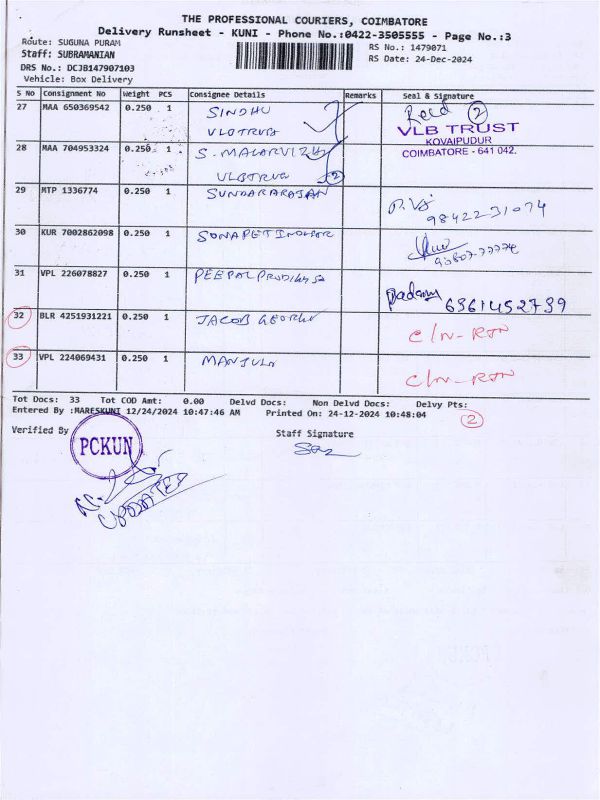 THE PROFESSIONAL COURIERS, COIMBATORE
Delivery Runsheet - KUNI - Phone No.:0422-3505555 - Page No.:3
Route: SUGUNA PURAM
RS No.: 1479071
Staff: SUBRAMANIAN
RS Date: 24-Dec-2024
DRS No.: DCJB147907103
Vehicle: Box Delivery
S No Consignment No Weight PCS Consignee Details Remarks Seal & Signature
27 MAA 650369542 0.250 1 SINDHU Recd 2
VLBTRUS
VLB TRUST
KOVAIPUDUR
COIMBATORE - 641 042.
28 MAA 704953324 0.250 1 S. MALARVIZHI
2
29 MTP 1336774 0.250 1 SUNDARARAJAN
9842231074
30 KUR 7002862098 0.250 1
31 VPL 226078827 0.250 1 PEEPAL
Padam 6361452739
32 BLR 4251931221 0.250 1 JACOB GEORGE C/N-RTN
33 VPL 224069431 0.250 1 MANJULA C/N-RTN
Tot Docs: 33 Tot COD Amt: 0.00 Delvd Docs: Non Delvd Docs: Delvy Pts:
Entered By :MARESKUNI 12/24/2024 10:47:46 AM Printed On: 24-12-2024 10:48:04
2
Verified By
Staff Signature
PCKUN
UPDATED